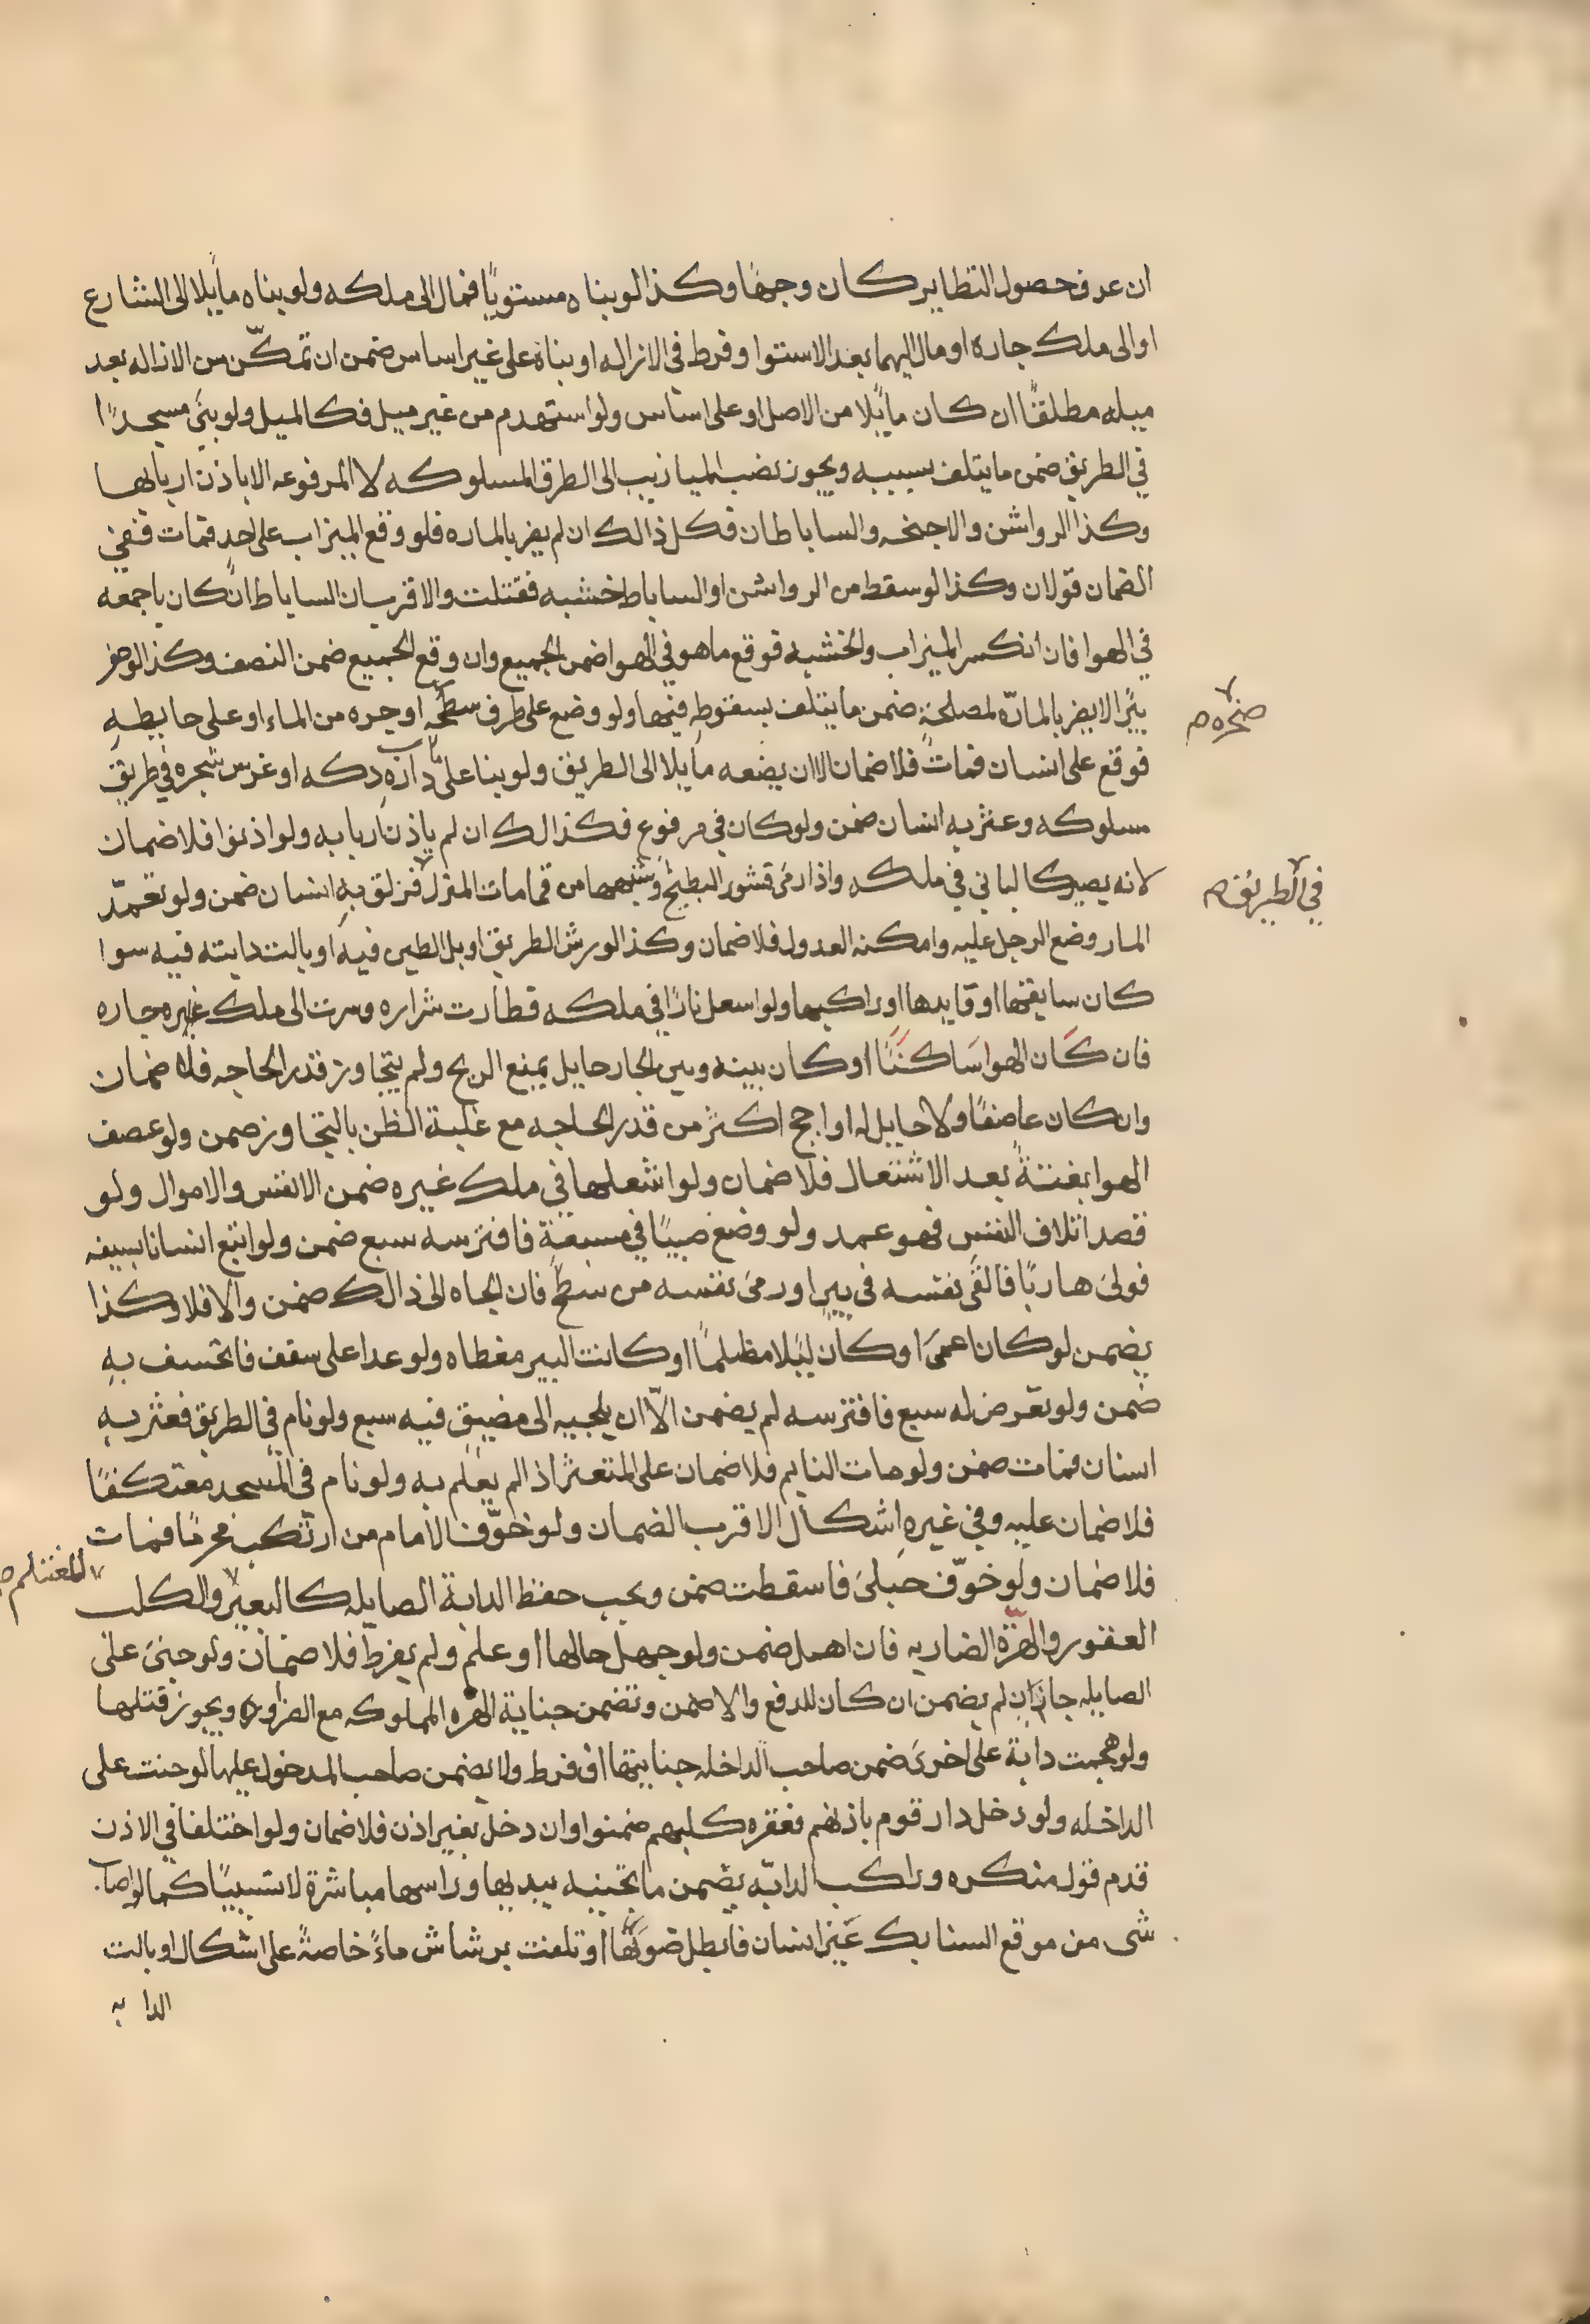 ان عرف حصول التطاير كان وجها وكذا لو بناه مستويًا فمال الى ملكه ولو بناه مايلا الى الشارع
او الى ملك جاره او مال اليهما بعد الاستوا وفرط فى الازاله او بناه على غير اساس ضمن ان تمكّن من الازاله بعد
ميله مطلقًا ان كان مايلا من الاصل او على اساس ولو استهدم من غير ميل فكالميل ولو بنى مسجدًا
في الطريق ضمن ما يتلف بسببه ويجوز نصب الميازيب الى الطرق المسلوكه لا المرفوعه الا باذن اربابها
وكذا الرواشن والاجنحه والساباطان فكل ذالك ان لم يضر بالماره فلو وقع الميزاب على احد فمات ففي
الضمان قولان وكذا لو سقط من الرواشن او الساباط خشبه فقتلت والاقرب ان الساباط ان كان باجمعه
في الهوا فان انكسر الميزاب والخشبه فوقع ما هو في الهوا ضمن الجميع وان وقع الجميع ضمن النصف وكذا لو حفر
بئرًا لا يضر بالمارّه لمصلحةٍ ضمن ما يتلف بسقوطه فيها ولو وضع على طرف سطحه او جره من الماء او على حايطهِ
صخره م
فوقع على انسان فمات فلا ضمان الا ان يضعه مايلا الى الطريق ولو بنا على باب داره دكه او غرس شجره في طريق
مسلوكه وعثر به انسان ضمن ولو كان في مرفوع فكذالك ان لم ياذن اربابه ولو اذنوا فلا ضمان
لانه يصير كالباني في ملكه واذا رمى قشور البطيخ وشبهها من قمامات المنزل فزلق بهِ انسان ضمن ولو تعمّد
في الطريق م
المار وضع الرجل عليه وامكنه العدول فلا ضمان وكذا لو رش الطريق او بل الطين فيه او بالت دابته فيه سوا
كان سايقها او قايدها او راكبها ولو اسعل نارًا في ملكه فطارت شراره وسرت الى ملك غيره جاره
فان كان الهوا ساكنًا او كان بينه وبين الجار حايل يمنع الريح ولم يتجاوز قدر الحاجه فلا ضمان
وان كان عاصفًا ولا حايل له او اجج اكثر من قدر الحاجه مع غلبة الظن بالتجاوز ضمن ولو عصف
الهوا بغتةً بعد الاشتعال فلا ضمان ولو اشعلها في ملك غيره ضمن الانفس والاموال ولو
قصد اتلاف النفس فهو عمد ولو وضع صبيًا في مسبعةٍ فافترسه سبع ضمن ولو اتبع انسانا بسيفه
فولى هاربًا فالقى نفسه فى بير او رمى نفسه من سطح فان الجاه الى ذالك ضمن والا فلا وكذا
يضمن لو كان اعمى او كان ليلا مظلمًا او كانت البير مغطاه ولو عدا على سقف فانخسف بهِ
ضمن ولو تعرض له سبع فافترسه لم يضمن الّا ان يلجيه الى مضيق فيه سبع ولو نام في الطريق فعثر بهِ
انسان فمات ضمن ولو مات النايم فلا ضمان على المتعثر اذا لم يعلم به ولو نام في المسجد معتكفًا
فلا ضمان عليه وفي غيره اشكال الاقرب الضمان ولو خوّف الامام من ارتكب محرمًا فمات
فلا ضمان ولو خوّف حبلى فاسقطت ضمن ويجب حفظ الدابة الصايله كالبعير والكلب
المغتلم ص
العقور والهرّه الضاريه فان اهمل ضمن ولو جهل حالها او علم ولم يفرط فلا ضمان ولو جنى على
الصايله جان لم يضمن ان كان للدفع والا ضمن وتضمن جناية الهره المملوكه مع الضراوه ويجوز قتلها
ولو هجمت دابة على اخرى ضمن صاحب الداخله جنايتها ان فرط ولا يضمن صاحب المدخول عليها لو جنت على
الداخله ولو دخل دار قوم باذنهم فعقره كلبهم ضمنوا وان دخل بغير اذن فلا ضمان ولو اختلفا في الاذن
قدم قول منكره وراكب الدابّه يضمن ما تجنيه بيديها وراسها مباشرة لا تسبيبًا كما لو اصاب
شى من موقع السنابك عين انسان فابطل ضوءها او تلفت برشاش ماءٍ خاصةً على اشكال او بالت
الدابه